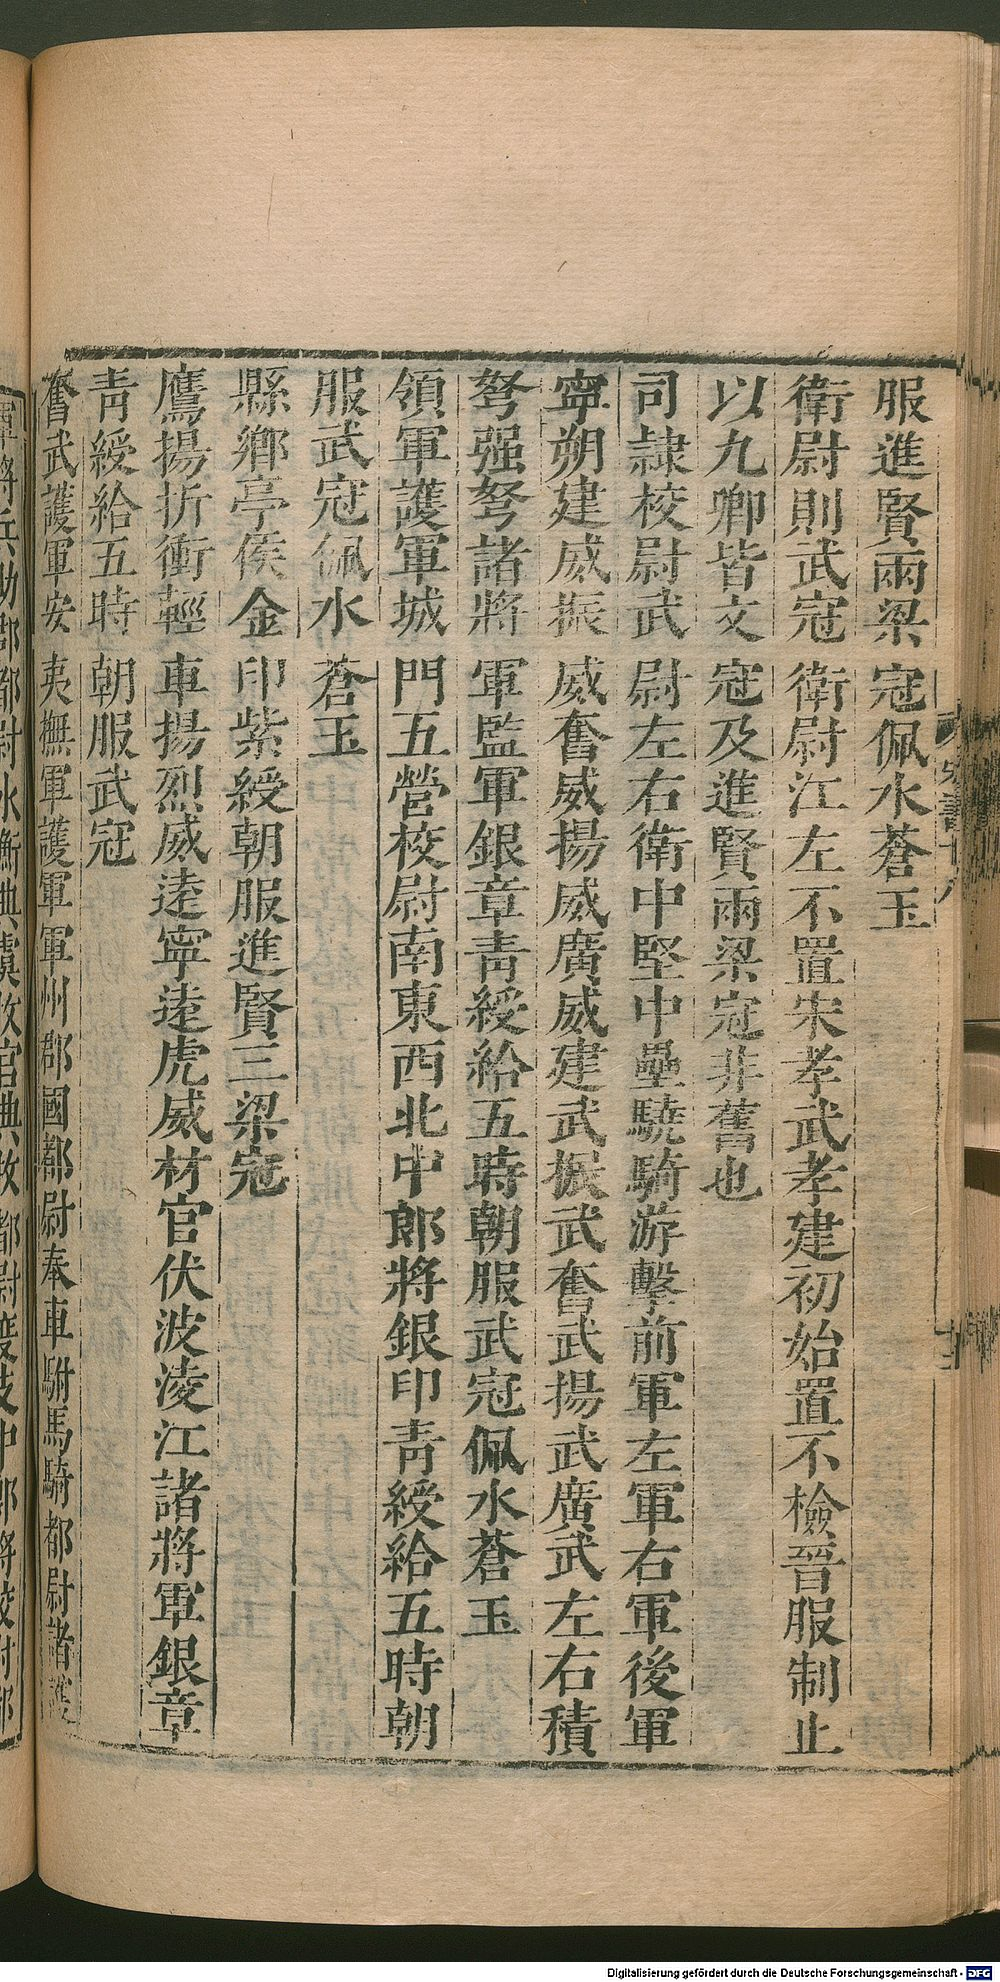 服進賢兩梁冠佩水蒼玉
衛尉則武冠衛尉江左不置宋孝武孝建初始置不檢晉服制止
以九卿皆文冠及進賢兩梁冠非舊也
司隸校尉武尉左右衛中堅中壘驍騎游擊前軍左軍右軍後軍
寧朔建威振威奮威揚威廣威建武振武奮武揚武廣武左右積
弩强弩諸將軍監軍銀章靑綬給五時朝服武冠佩水蒼玉
領軍護軍城門五營校尉南東西北中郎將銀印靑綬給五時朝
服武冠佩水蒼玉
縣鄉亭侯金印紫綬朝服進賢三梁冠
鷹揚折衝輕車揚烈威逺寧逺虎威材官伏波淩江諸將軍銀章
靑綬給五時朝服武冠
奮武護軍安夷撫軍護軍軍州郡國都尉奉車駙馬騎都尉諸護
軍將兵助郡都尉水衡典虞牧官典牧都尉度支中郎將校尉都
宋書十八
Digitalisierung gefördert durch die Deutsche Forschungsgemeinschaft - DFG